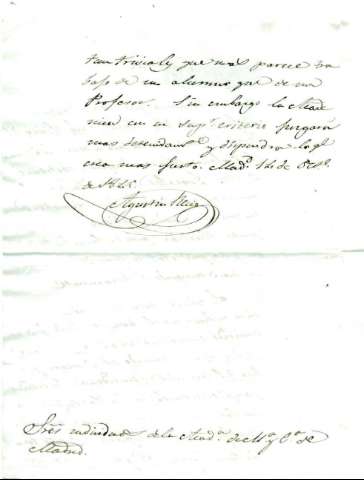 tan trivial y que mas parece tra
bajo de un alumno que de un
Profesor. Sin embargo la Acad
mien en su sup.r criterio juzgará
mas detenidam.te y dispondra lo q.e
crea mas justo. Mad.d 14 de
de
Agustin
Sres individuos de la Acad.a de M.a y C.a de
Madrid.